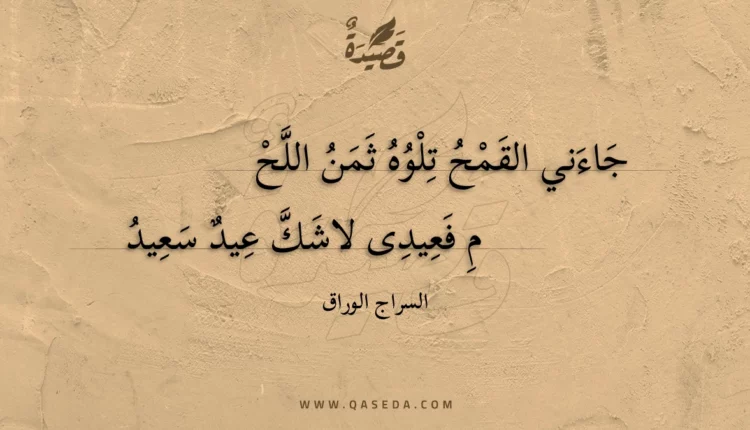 قَصِيدَةٌ
جَاءَني القَمْحُ تِلْوُهُ ثَمَنُ اللَّحْ
مِ فَعِيدِى لاشَكَّ عِيدٌ سَعِيدُ
السراج الوراق
WWW.QASEDA.COM